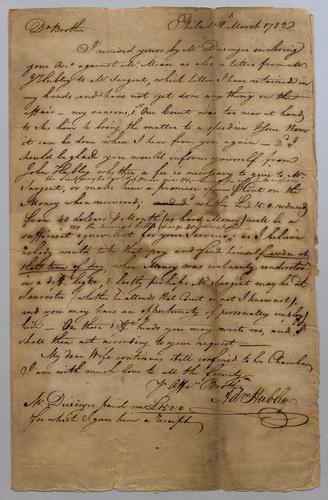 Dr Brother
Philada 8th March 1782
I received yours by Mr Deisinger enclosing
your Acct against Mr Mease as also a letter from Mr
Jno Hubley to Mr Sargent, which letter I have retained in
my hands and have not yet done any thing on the
affair — my reasons, 1st Our Court was too near at hand
to sue him to bring the matter to a speedier Issue than
it can be done when I hear from you again — 2d I
should be glad you would inform yourself from
John Hubley whether a fee is necessary to give to Mr
Sargent, or make him a promise of so much Ct on the
Money when recovered, 3d whether
from 40 dollars Month hard Money will be a
sufficient equivalent for your Services, as I believe
nobody would take that pay and find himself even at
that time of day, when Money was certainly understood
in a diff. light, & lastly perhaps Mr Sargent may be at
Lancaster (whether he attends that Court or not I know not),
and you may have an oppertunity of personally employg
him — On these heads you may write me, and I
shall then act according to your request —
My dear Wife continues still confined to her Chamber
I am with much love to all the family
Yr Affec. Brother
Adm Hubley
Mr Deisinger paid me £15.0.0
for which I gave him a Receipt